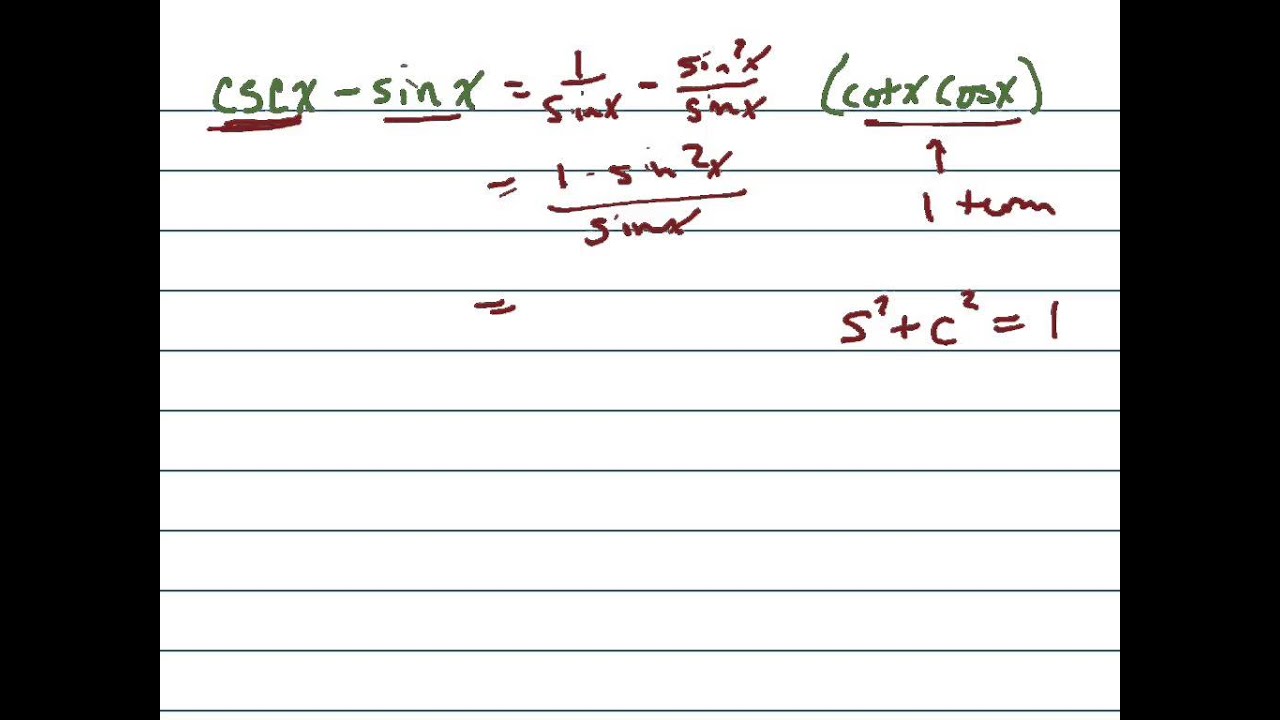 csc x - sin x = 1/sin x - sin²x/sin x (cot x cos x)
= 1 - sin²x/sin x ↑
1 term
= s² + c² = 1